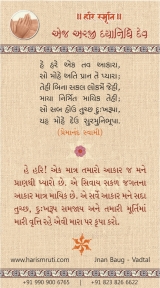 ॥ હરિ સ્મૃતિ ॥
એજ અરજી દયાનિધિ દેવ
હે હરે એક તવ આકારા,
સો મોહે અતિ પ્રાન તે પ્યારા;
તેહી બિના સકલ લોકમેં જેહી,
માયા નિર્મિત માયિક તેહી;
સો સબ હોઉ તુચ્છ દુઃખરૂપા,
યહ મોહે દેઉ સુરમુનિભૂપા.
(પ્રેમાનંદ સ્વામી)
હે હરિ! એક માત્ર તમારો આકાર જ મને
પ્રાણથી પ્યારો છે. એ સિવાય સકળ જગતના
આકાર માત્ર માયિક છે. એ સર્વે આકાર મને સદા
તુચ્છ, દુઃખરૂપ સમજાય અને તમારી મૂર્તિમાં
મારી વૃત્તિ રહે એવી મારા પર કૃપા કરો.
www.harismruti.com
Jnan Baug - Vadtal
+91 990 900 6765
+91 823 826 6622